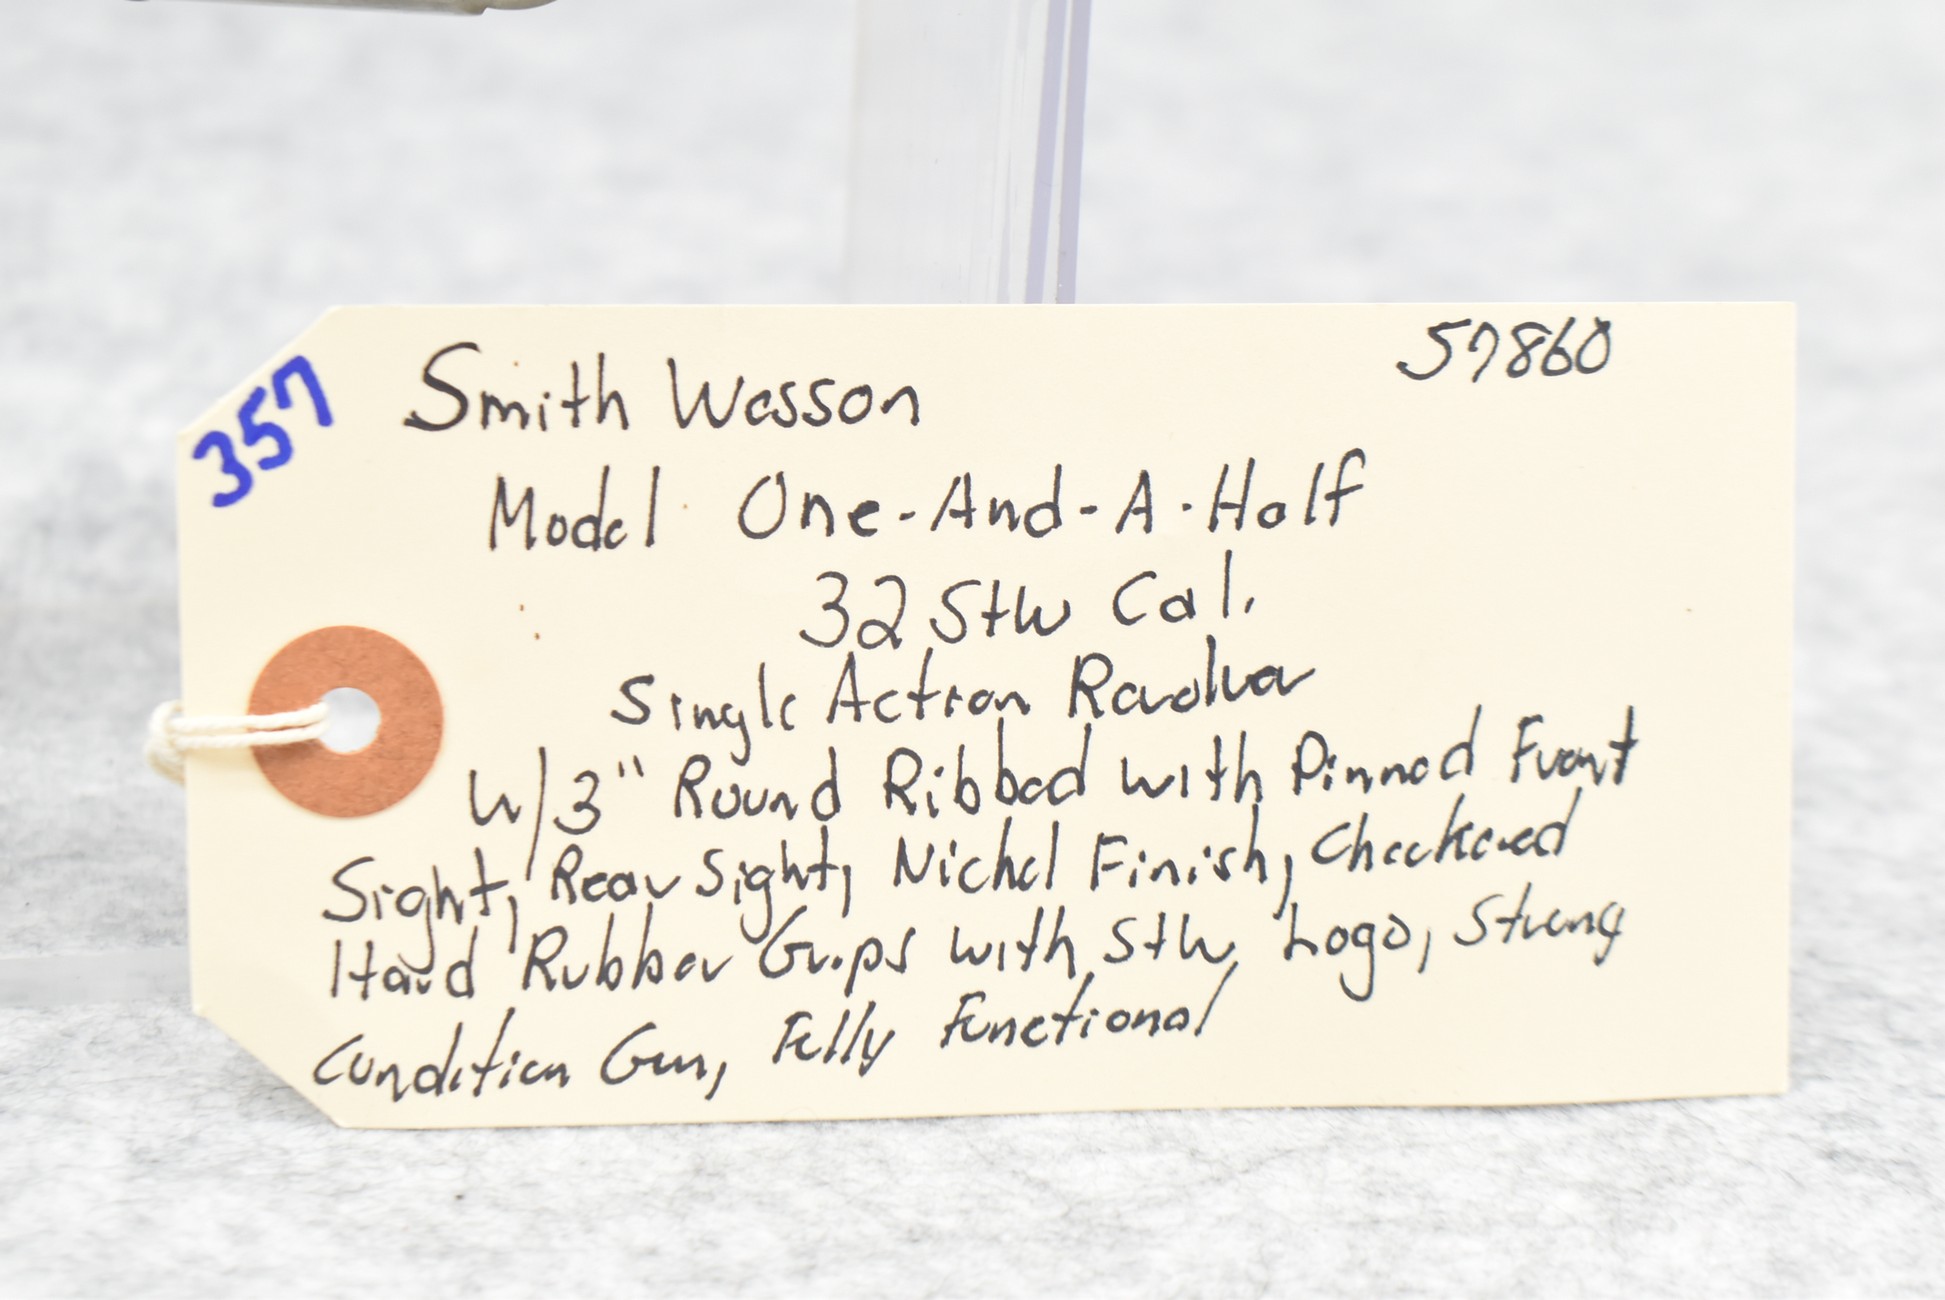 357
57860
Smith Wesson
Model One-And-A-Half
32 S+W Cal.
Single Action Revolver
W/3" Round Ribbed with Pinned Front
Sight, Rear Sight, Nickel Finish, Checkered
Hard Rubber Grips with S+W Logo, Strong
Condition Gun, Fully Functional